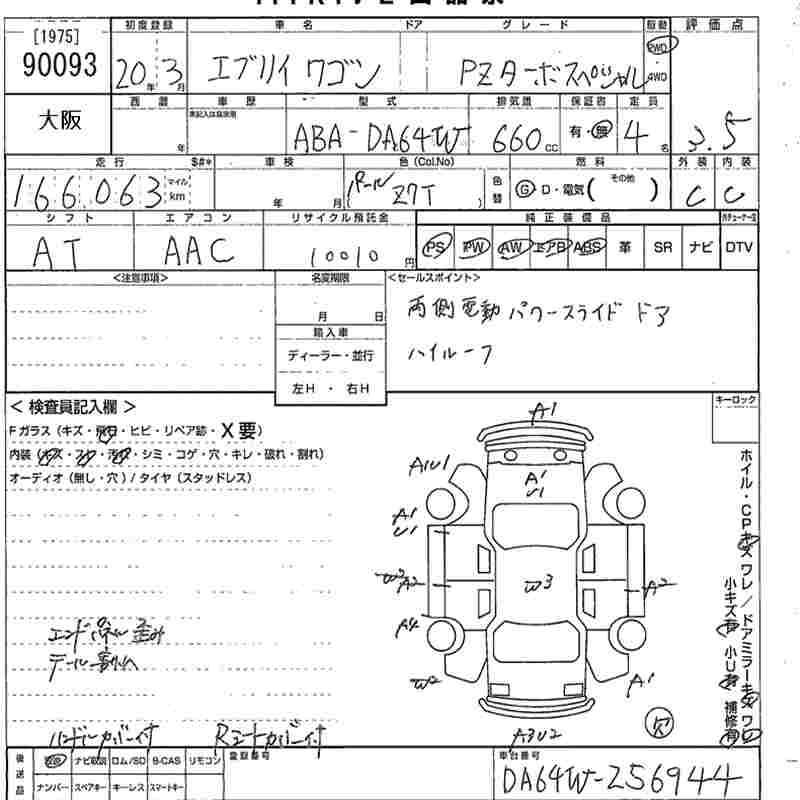 [1975]
90093
初度登録 車名 ドア グレード 駆動 評価点
20年 3月 エブリイ ワゴン PZターボスペシャル 2WD 4WD
大阪
西暦 車歴 型式 排気量 保証書 定員
未記入は自家用
年 ABA-DA64W 660cc 有・無 4名 3.5
走行 $#* 車検 色(Col.No) 燃料 外装 内装
166,063 マイル km 年 月 パール ( Z7T ) 色替 G・D・電気( その他 ) C C
シフト エアコン リサイクル預託金 純正装備品
AT AAC 10010円 PS PW AW エアB ABS 革 SR ナビ DTV
<注意事項> 名変期限 <セールスポイント>
月 日 両側電動 パワースライド ドア
輸入車
ディーラー・並行 ハイルーフ
左H ・ 右H
< 検査員記入欄 > キーロック
Fガラス(キズ・飛石・ヒビ・リペア跡・X要)
内装(キズ・スレ・汚れ・シミ・コゲ・穴・キレ・破れ・割れ)
オーディオ(無し・穴)/タイヤ(スタッドレス)
A1
A1U1
A1
U1
A1
U1
W3
A2
W3
A2
A4
W2
A1
A3U2
欠
ホイル・CPキズワレ/ドアミラーキズワレ
小キズ有 小U有 補修有
テール割れ
ハンドルカバー付 Rシートカバー付
後送品 ナビ取説 ロム/SD B-CAS リモコン
ナンバー スペアキー キーレス スマートキー
登録番号
車台番号
DA64W-256944